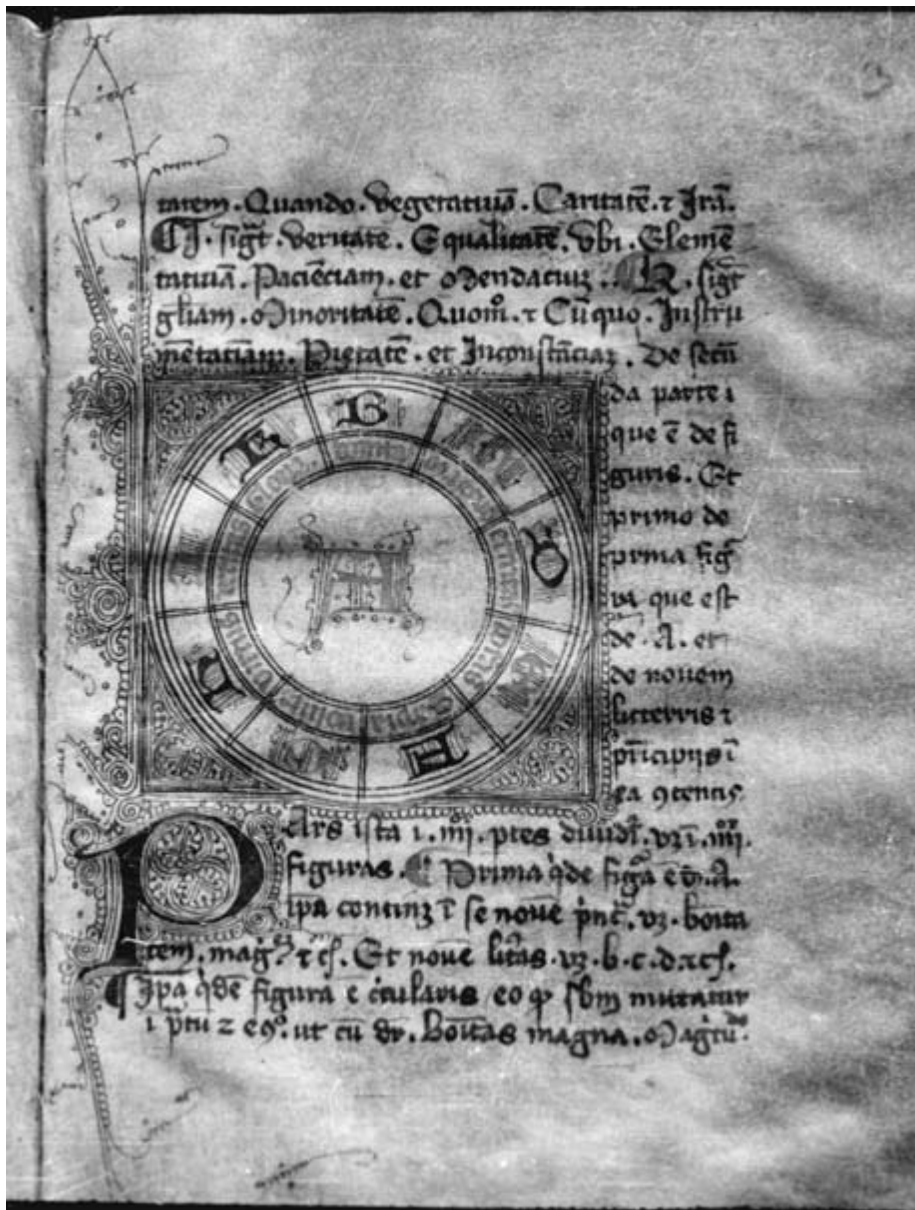 tatem . Quando . vegetatiuā . Caritatē . ⁊ Irā .
¶ I . sigt̄ . veritatē . Equalitatē . vbi . Elemē
tatiuā . Paciēciam . et Mendaciuꝫ . ¶ K . sigt̄
gl̄iam . Minoritatē . Quom̊ . ⁊ Cū quo . Instru
mētatiuam . Pietatē . et Inconstāciaꝫ . De secū
da parte i
que ē de fi
guris . Et
primo de
prima figᵃ
ra que est
de . A . et
de nouem
litterris ⁊
pīncipijs ī
ea ꝯtentis
B
C
D
E
F
G
H
I
K
A
PArs ista i . iiii . ptes diuidit̄ . vꝫ ī . iiii .
figuras . ¶ Prima q̇de figᵃ ē d̄ . A .
ip̄a continꝫ ī se nouē p̄nc̄ . vꝫ . bōita
tem . mag̊ . ⁊ c̄ . Et nouē lit̄as . vꝫ . b . c . d . ⁊ c̄ .
¶ Ip̄a q̇dē figura ē c̄icularis eo ꝙ sb̄m mutatur
i p̄tū ⁊ eꝯ . ut cū dr̄ . bōitas magna . Mag̊tū de .